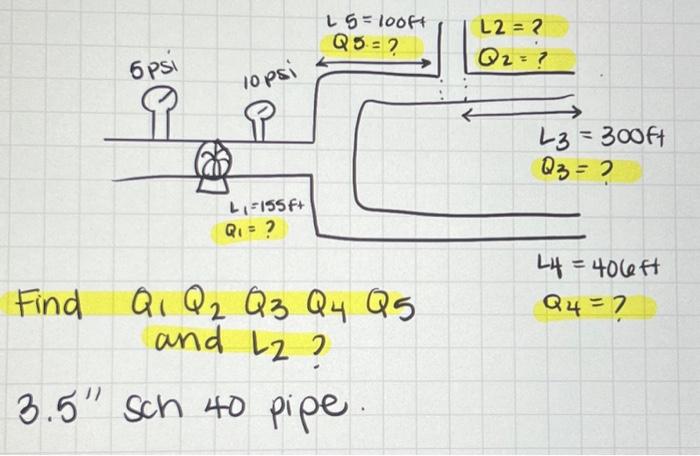 L 5 = 100ft
Q5 = ?
L2 = ?
Q2 = ?
5psi
10 psi
L3 = 300ft
Q3 = ?
L1 = 155ft
Q1 = ?
L4 = 406ft
Q4 = ?
Find Q1 Q2 Q3 Q4 Q5
and L2 ?
3.5" sch 40 pipe.